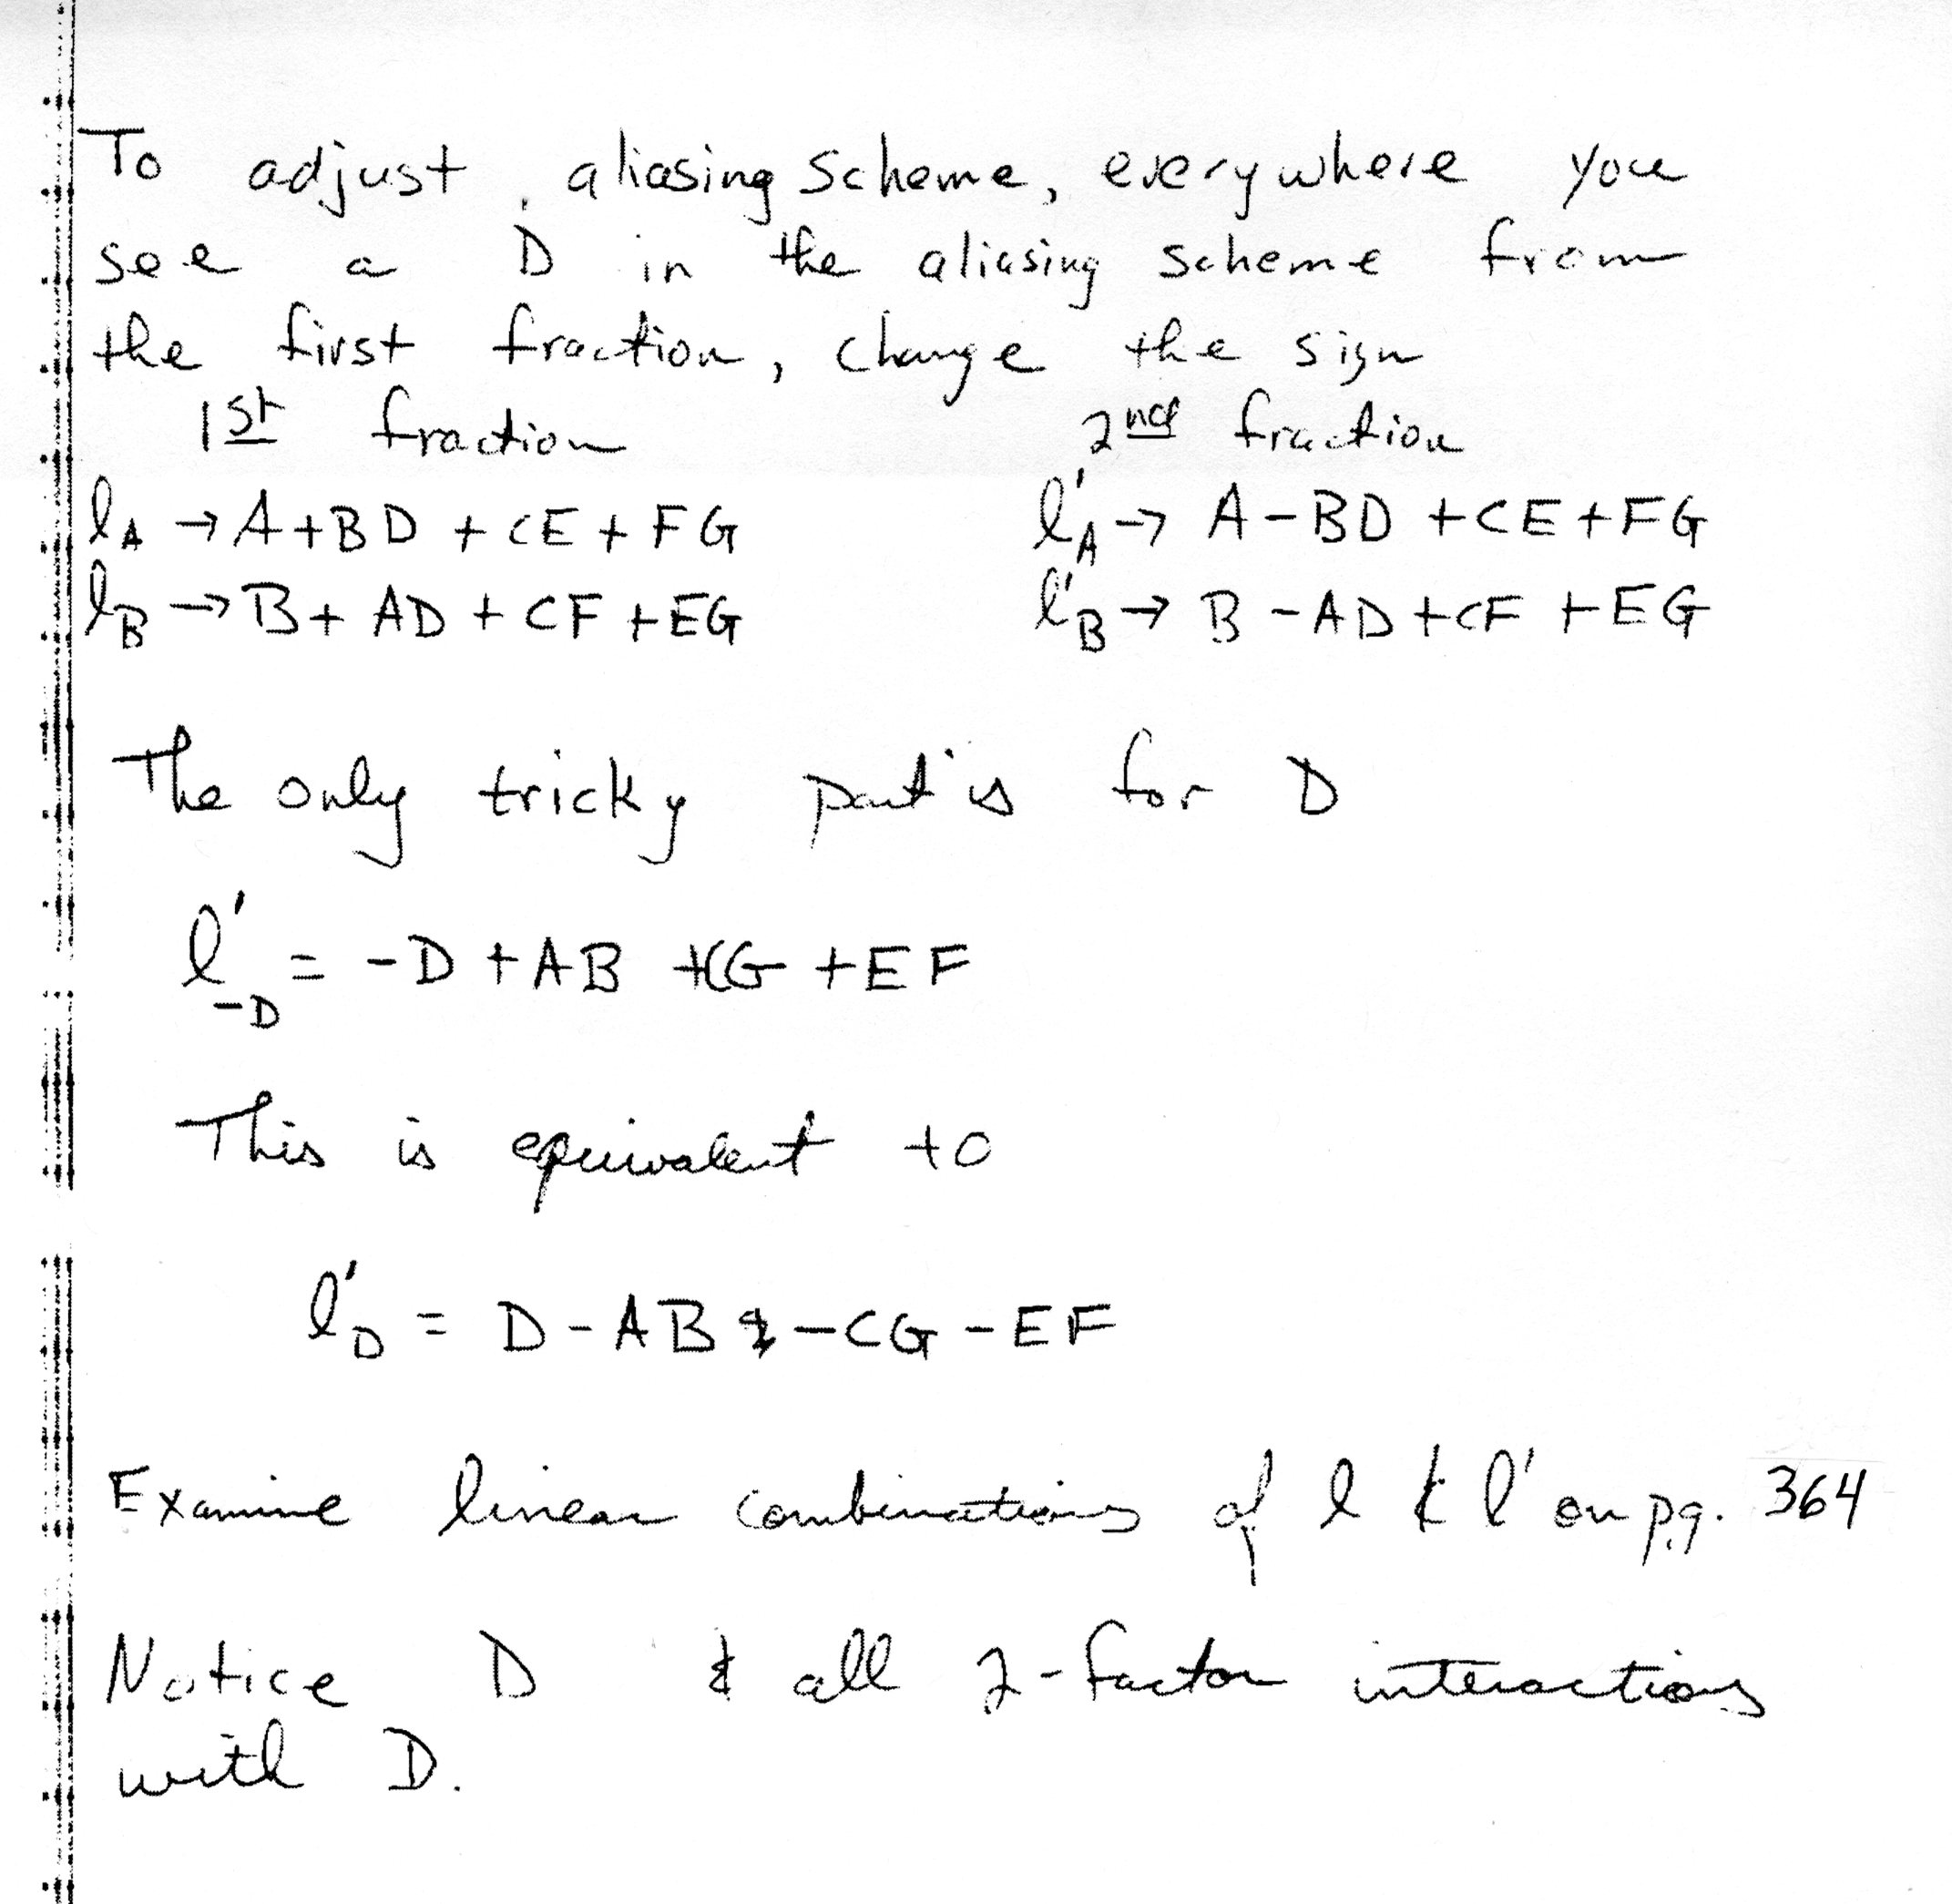 To adjust, aliasing scheme, everywhere you
see a D in the aliasing scheme from
the first fraction, change the sign
1st fraction 2nd fraction
lA → A+BD + CE + FG l'A → A-BD +CE+FG
lB → B+ AD + CF +EG l'B → B -AD +CF +EG
The only tricky part is for D
l'-D = -D +AB +CG +EF
This is equivalent to
l'D = D-AB -CG -EF
Examine linear combinations of l & l' on pg. 364
Notice D & all 2-factor interactions
with D.